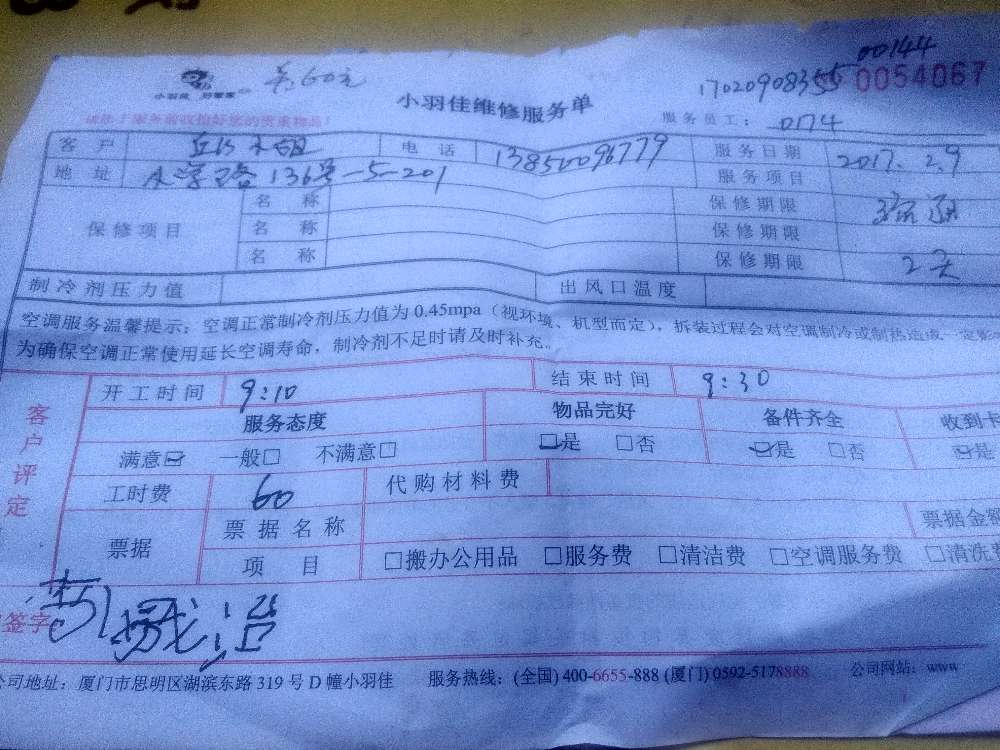 00144
小羽佳 好管家 共60元 小羽佳维修服务单 17020908355 0054067
服务员工: 0174
客户 电话 13850096779 服务日期 2017.2.9
地址 大学路136号-5-201 服务项目
保修项目 名称 保修期限
名称 保修期限
名称 保修期限 2天
制冷剂压力值 出风口温度
空调服务温馨提示:空调正常制冷剂压力值为0.45mpa(视环境、机型而定),拆装过程会对空调制冷或制热造成一定影
为确保空调正常使用延长空调寿命,制冷剂不足时请及时补充。
客户评定 开工时间 9:10 结束时间 9:30
服务态度 物品完好 备件齐全 收到卡
满意☑ 一般□ 不满意□ ☑是 □否 ☑是 □否 ☑是
工时费 60 代购材料费
票据 票据名称 票据金额
项目 □搬办公用品 □服务费 □清洁费 □空调服务费 □清洗
签字
公司地址:厦门市思明区湖滨东路319号D幢小羽佳 服务热线:(全国)400-6655-888(厦门)0592-5178888 公司网站:www